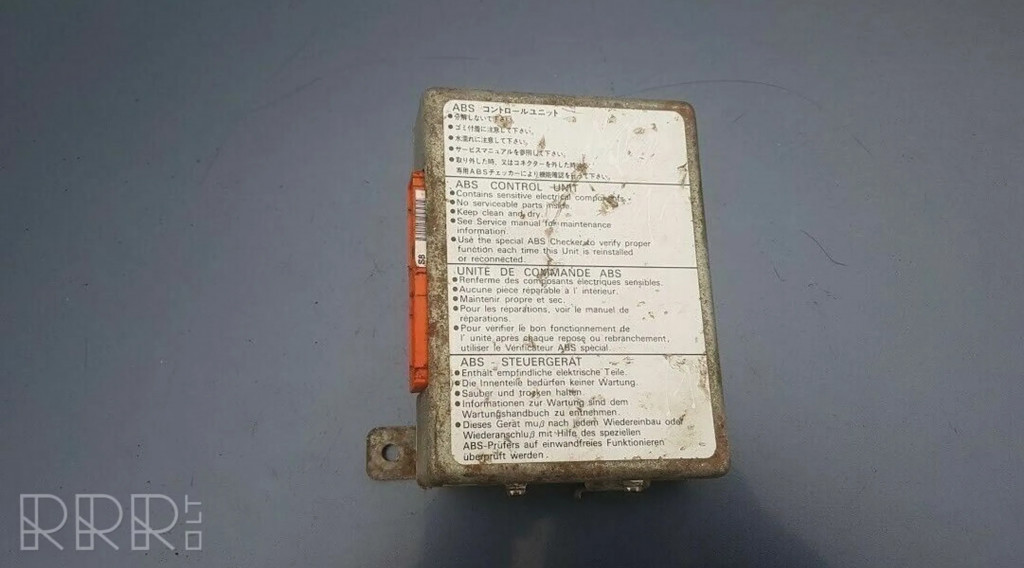 ABS コントロールユニット
● 分解しないで下さい。
● ゴミ付着に注意して下さい。
● 水濡れに注意して下さい。
● サービスマニュアルを参照して下さい。
● 取り外した時、又はコネクターを外した時
専用ABSチェッカーにより機能確認を行って下さい。
ABS CONTROL UNIT
● Contains sensitive electrical components.
● No serviceable parts inside.
● Keep clean and dry.
● See Service manual for maintenance
information.
● Use the special ABS Checker to verify proper
function each time this Unit is reinstalled
or reconnected.
UNITÉ DE COMMANDE ABS
● Renferme des composants électriques sensibles.
● Aucune pièce réparable à l' intérieur.
● Maintenir propre et sec.
● Pour les réparations, voir le manuel de
réparations.
● Pour vérifier le bon fonctionnement de
l' unité après chaque repose ou rebranchement,
utiliser le Vérificateur ABS spécial.
ABS - STEUERGERÄT
● Enthält empfindliche elektrische Teile.
● Die Innenteile bedürfen keiner Wartung.
● Sauber und trocken halten.
● Informationen zur Wartung sind dem
Wartungshandbuch zu entnehmen.
● Dieses Gerät muß nach jedem Wiedereinbau oder
Wiederanschluß mit Hilfe des speziellen
ABS-Prüfers auf einwandfreies Funktionieren
überprüft werden.
S8
RRR.LT